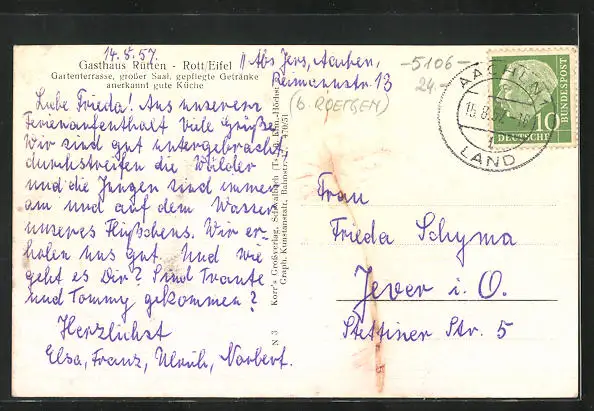 14.8.57.
Gasthaus Rütten - Rott/Eifel
Gartenterrasse, großer Saal, gepflegte Getränke
anerkannt gute Küche
Abs Jers, Aachen,
Reimannstr. 13
-5106-
24.-
(b. ROETGEN)
Liebe Frieda! Aus unserem
Ferienaufenthalt viele Grüße.
Wir sind gut untergebracht,
durchstreifen die Wälder
und die Jungen sind immer
am und auf dem Wasser
unseres Flüßchens. Wir er-
holen uns gut. Und wie
geht es Dir? Sind Traute
und Tommy gekommen?
Herzlichst
Elsa, Franz, Ulrich, Norbert.
N 3
Korr's Großverlag, Schwalbach (Ts.)
Graph. Kunstanstalt, Bahnstr.
470/51
AACHEN 1
LAND
10
DEUTSCHE
BUNDESPOST
Frau
Frieda Schyma
Jever i. O.
Stettiner Str. 5